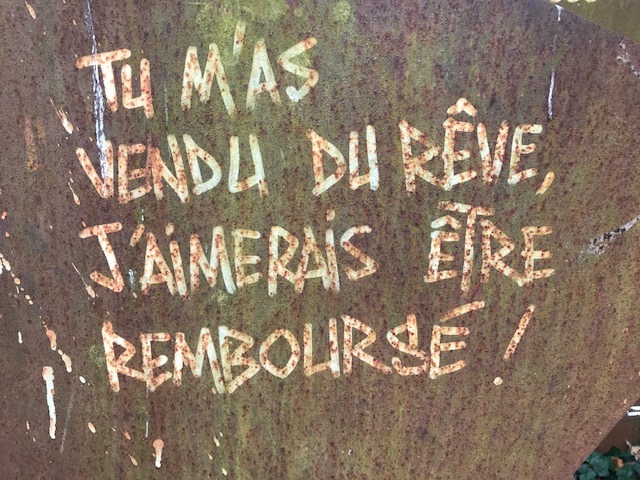 TU M'AS
VENDU DU RÊVE,
J'AiMERAiS ÊTRE
REMBOURSÉ !